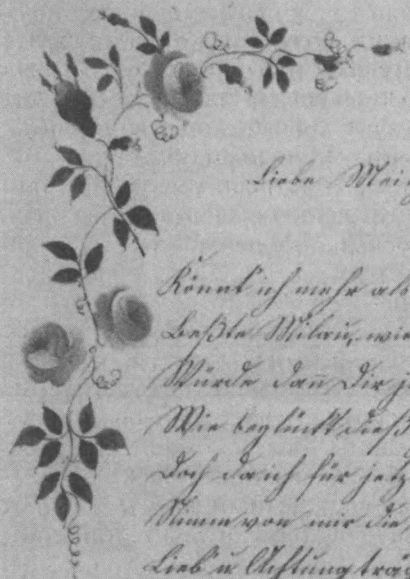 Liebe
Könnt' ich mehr als
Beßte Milau, wie
Würde dañ Dir
Wie beglückt dieß
Doch da ich für jetz
Nimm von mir die
Lieb' u: Achtung